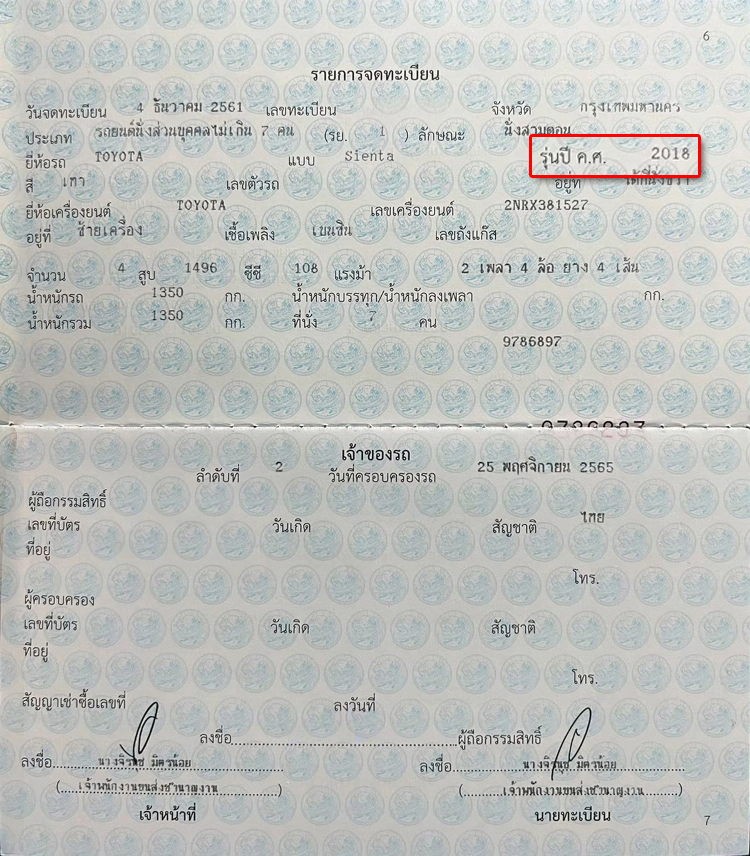 6
รายการจดทะเบียน
วันจดทะเบียน 4 ธันวาคม 2561 เลขทะเบียน จังหวัด กรุงเทพมหานคร
ประเภท รถยนต์นั่งส่วนบุคคลไม่เกิน 7 คน (รย. 1 ) ลักษณะ นั่งสามตอน
ยี่ห้อรถ TOYOTA แบบ Sienta รุ่นปี ค.ศ. 2018
สี เทา เลขตัวรถ อยู่ที่ ใต้ที่นั่งขวา
ยี่ห้อเครื่องยนต์ TOYOTA เลขเครื่องยนต์ 2NRX381527
อยู่ที่ ซ้ายเครื่อง เชื้อเพลิง เบนซิน เลขถังแก๊ส
จำนวน 4 สูบ 1496 ซีซี 108 แรงม้า 2 เพลา 4 ล้อ ยาง 4 เส้น
น้ำหนักรถ 1350 กก. น้ำหนักบรรทุก/น้ำหนักลงเพลา กก.
น้ำหนักรวม 1350 กก. ที่นั่ง 7 คน
9786897
เจ้าของรถ
ลำดับที่ 2 วันที่ครอบครองรถ 25 พฤศจิกายน 2565
ผู้ถือกรรมสิทธิ์
เลขที่บัตร วันเกิด สัญชาติ ไทย
ที่อยู่
โทร.
ผู้ครอบครอง
เลขที่บัตร วันเกิด สัญชาติ
ที่อยู่
โทร.
สัญญาเช่าซื้อเลขที่ ลงวันที่
ลงชื่อ ผู้ถือกรรมสิทธิ์
ลงชื่อ นางจิรนุช มิตรน้อย ลงชื่อ นางจิรนุช มิตรน้อย
(เจ้าพนักงานขนส่งชำนาญงาน) (เจ้าพนักงานขนส่งชำนาญงาน)
เจ้าหน้าที่ นายทะเบียน
7